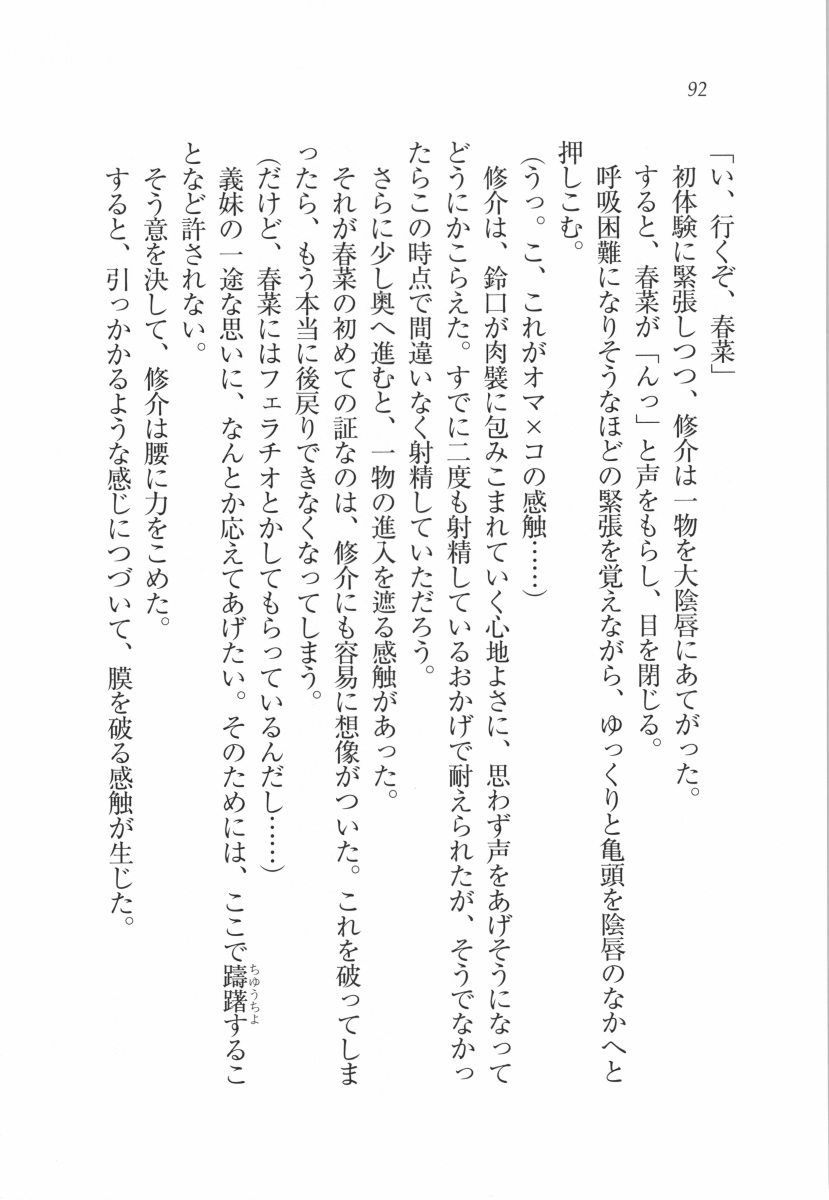 92
「い、行くぞ、春菜」
初体験に緊張しつつ、修介は一物を大陰唇にあてがった。
すると、春菜が「んっ」と声をもらし、目を閉じる。
呼吸困難になりそうなほどの緊張を覚えながら、ゆっくりと亀頭を陰唇のなかへと
押しこむ。
(うっ。こ、これがオマ×コの感触……)
修介は、鈴口が肉襞に包みこまれていく心地よさに、思わず声をあげそうになって
どうにかこらえた。すでに二度も射精しているおかげで耐えられたが、そうでなかっ
たらこの時点で間違いなく射精していただろう。
さらに少し奥へ進むと、一物の進入を遮る感触があった。
それが春菜の初めての証なのは、修介にも容易に想像がついた。これを破ってしま
ったら、もう本当に後戻りできなくなってしまう。
(だけど、春菜にはフェラチオとかしてもらっているんだし……)
義妹の一途な思いに、なんとか応えてあげたい。そのためには、ここで躊躇するこ
ちゆうちよ
となど許されない。
そう意を決して、修介は腰に力をこめた。
すると、引っかかるような感じにつづいて、膜を破る感触が生じた。